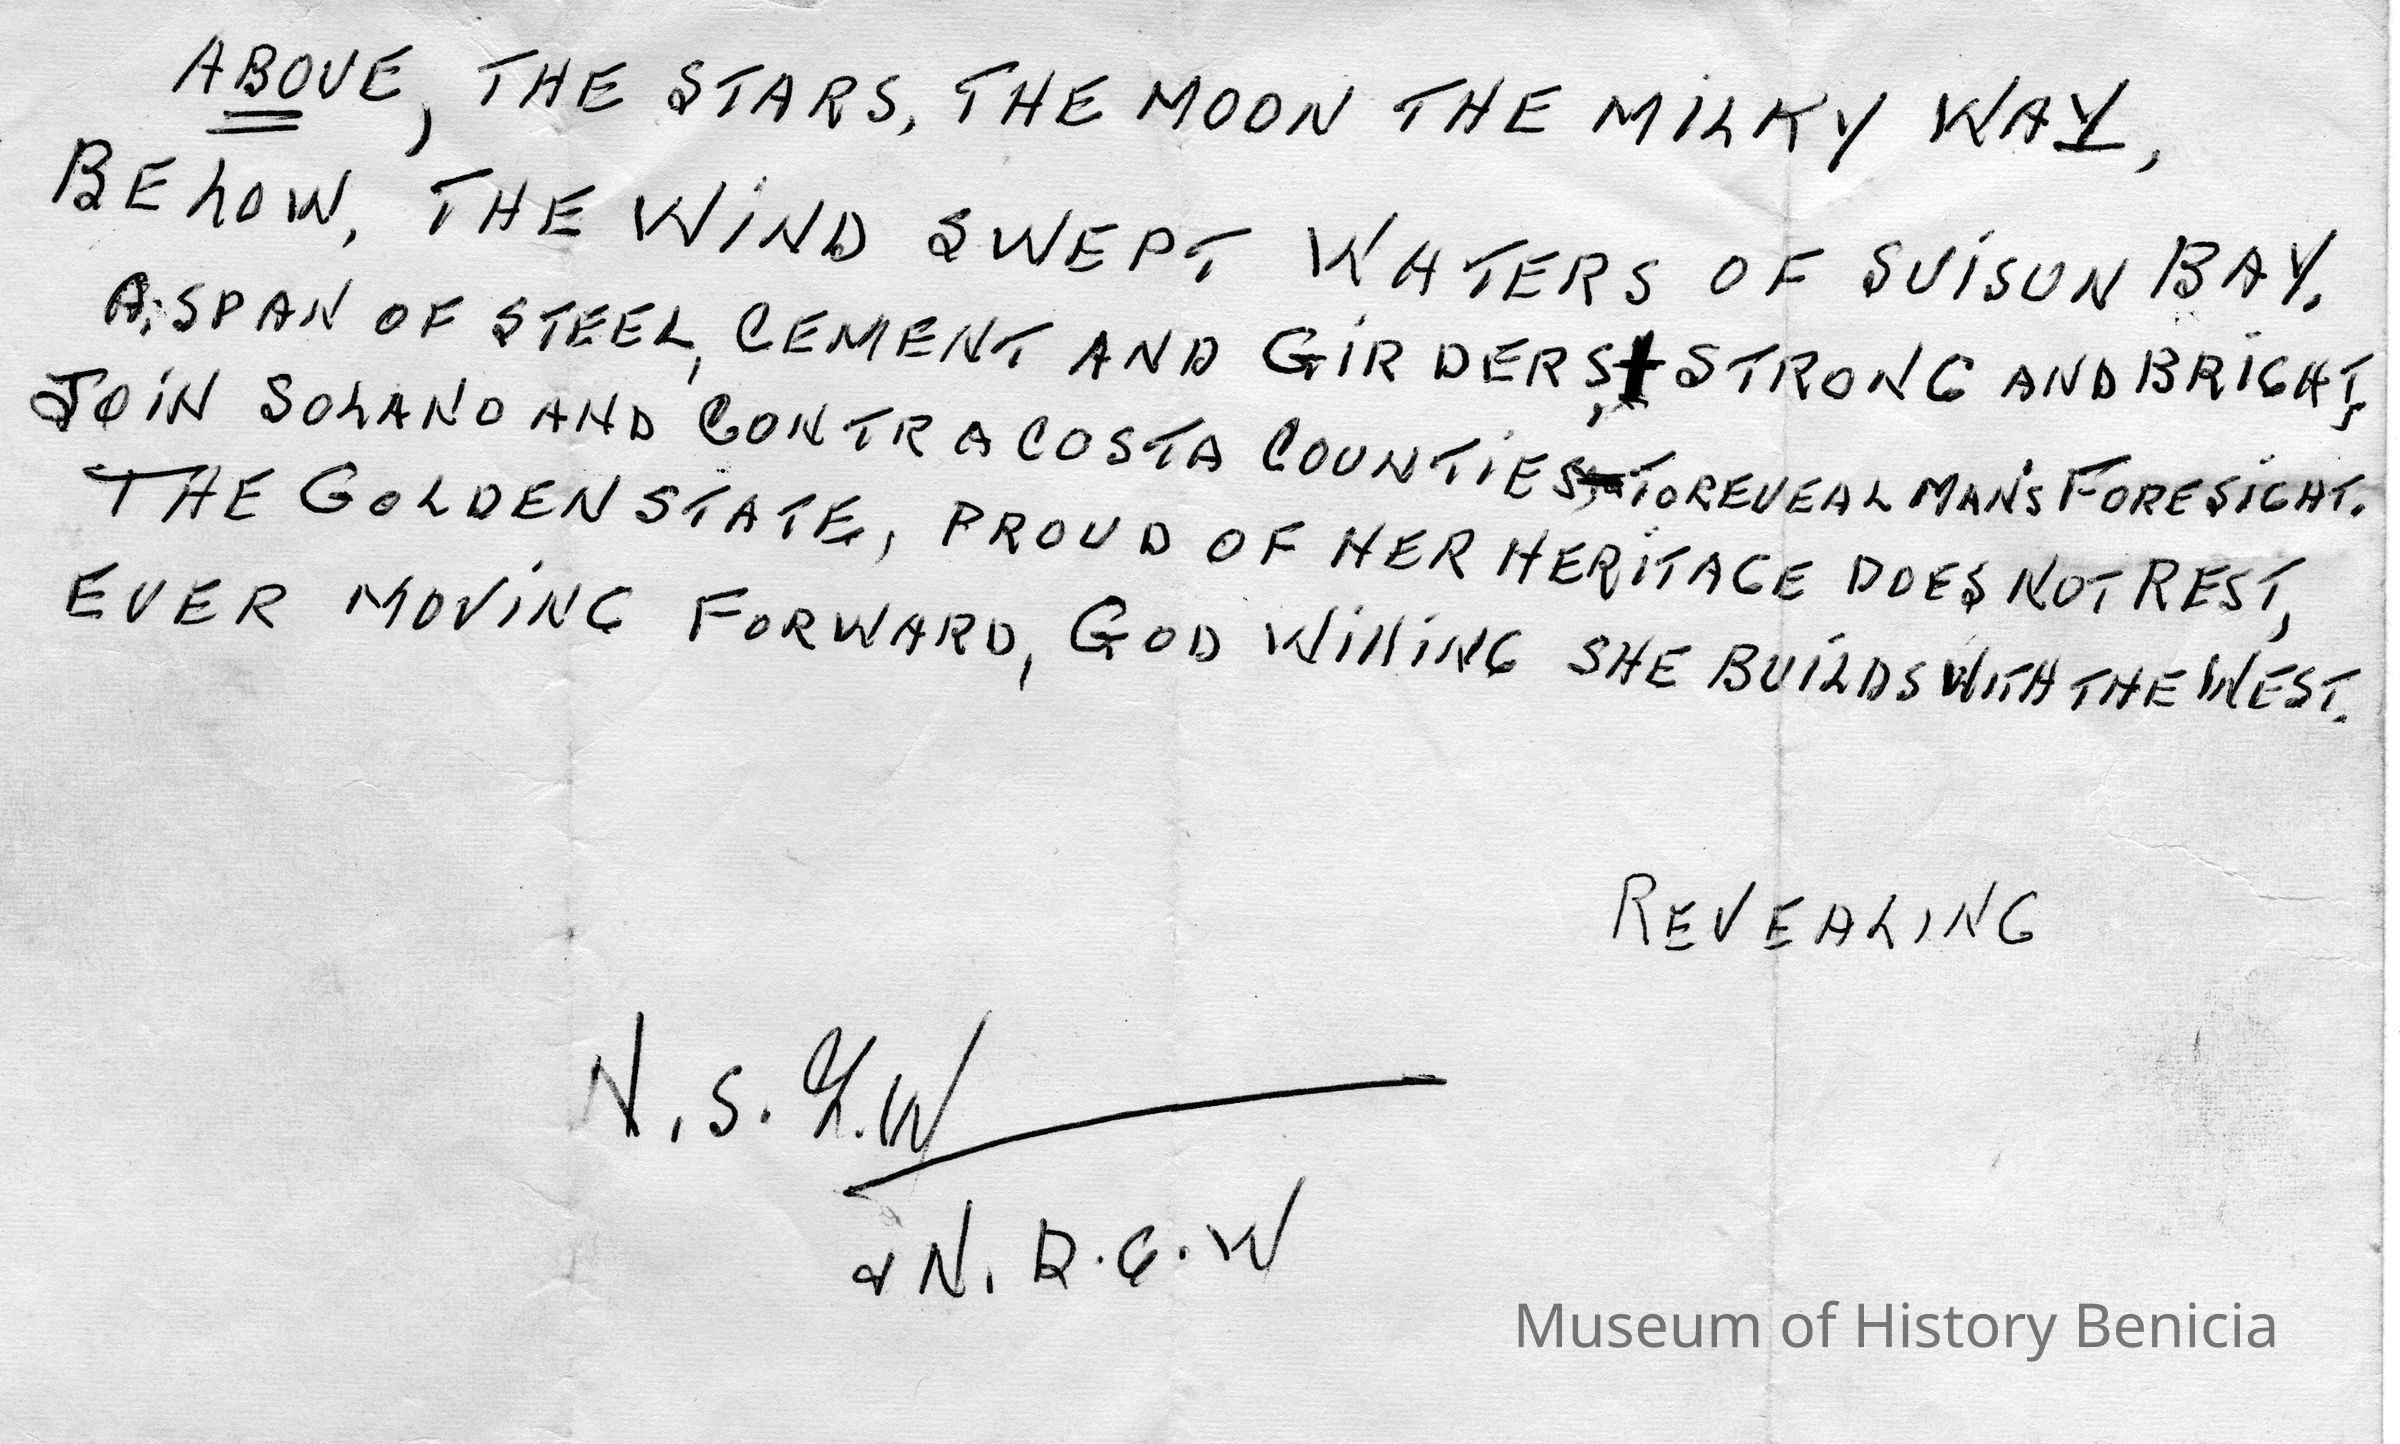 ABOVE, THE STARS, THE MOON THE MILKY WAY,
BELOW, THE WIND SWEPT WATERS OF SUISUN BAY.
A SPAN OF STEEL, CEMENT AND GIRDERS, STRONG AND BRIGHT,
JOIN SOLANO AND CONTRA COSTA COUNTIES, TO REVEAL MAN'S FORESIGHT.
THE GOLDEN STATE, PROUD OF HER HERITAGE DOES NOT REST,
EVER MOVING FORWARD, GOD WILLING SHE BUILDS WITH THE WEST.
REVEALING
N.S.G.W
& N.D.G.W
Museum of History Benicia